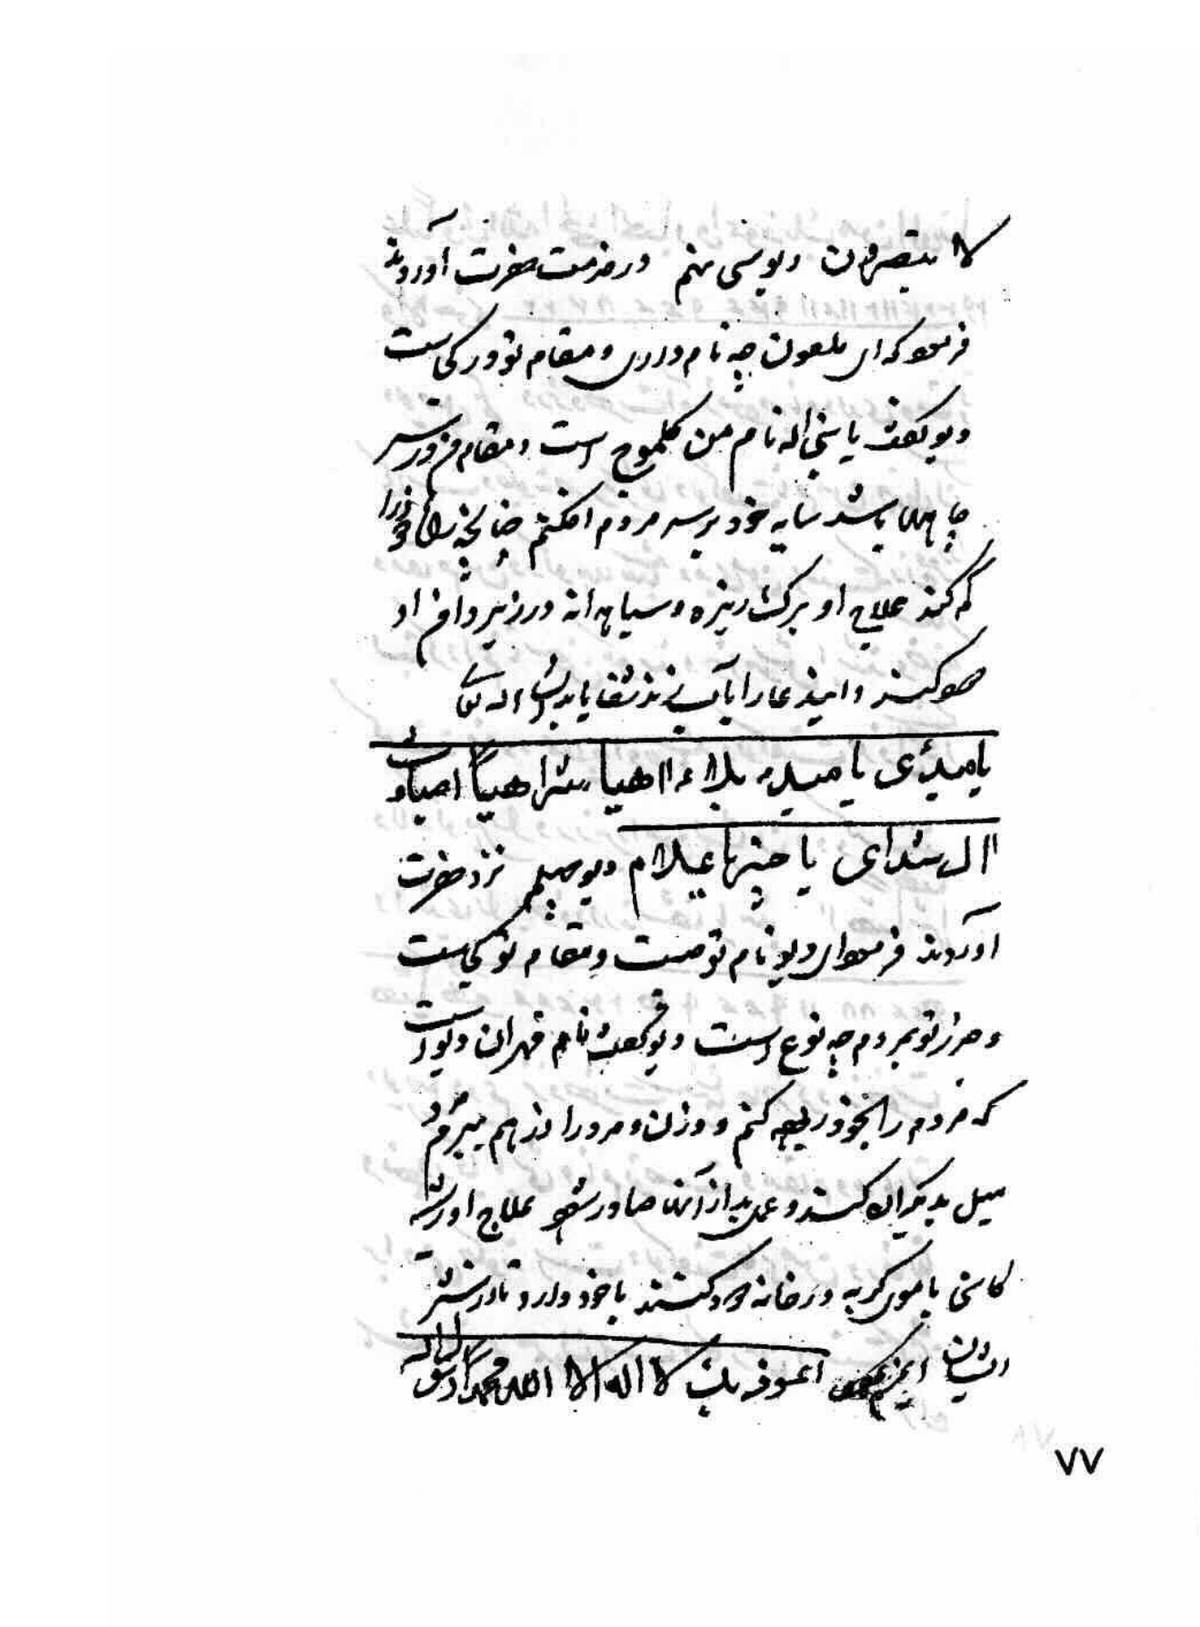 لا یتبصرون دیو سی نهم در خدمت حضرت آوردند
فرمود که ای ملعون چه نام داری و مقام تو در کجاست
دیو گفت یا نبی اله نام من کلموج است و مقام من در سر
چاهها باشد سایه خود بر سر مردم افکنم چنانچه
که کند علاج او برک ریزه و سیاه دانه در زیر دامن او
دود کنند و این دعا را با آب شفا یابد انشا اله تعالی
یا میلدی یا میلدم بلاء ااهیا شراهیا اصباوت
اال شدای یا عیلام دیو چهلم نزد حضرت
آوردند فرمود ای دیو نام تو چیست و مقام تو کجاست
و ضرر تو بمردم چه نوع است دیو گفت نام قهران دیو است
که مردم را بخود کنم و زن و مرد را از هم
میل بدیگران کنند و عمل بد از آنها صادر شود علاج او ریشه
کاسنی با موی گربه در خانه دود کنند با خود دارد تا از شر
ایشان ایمن اعوذ بک لا اله الا الله محمدا رسول الله
۷۷